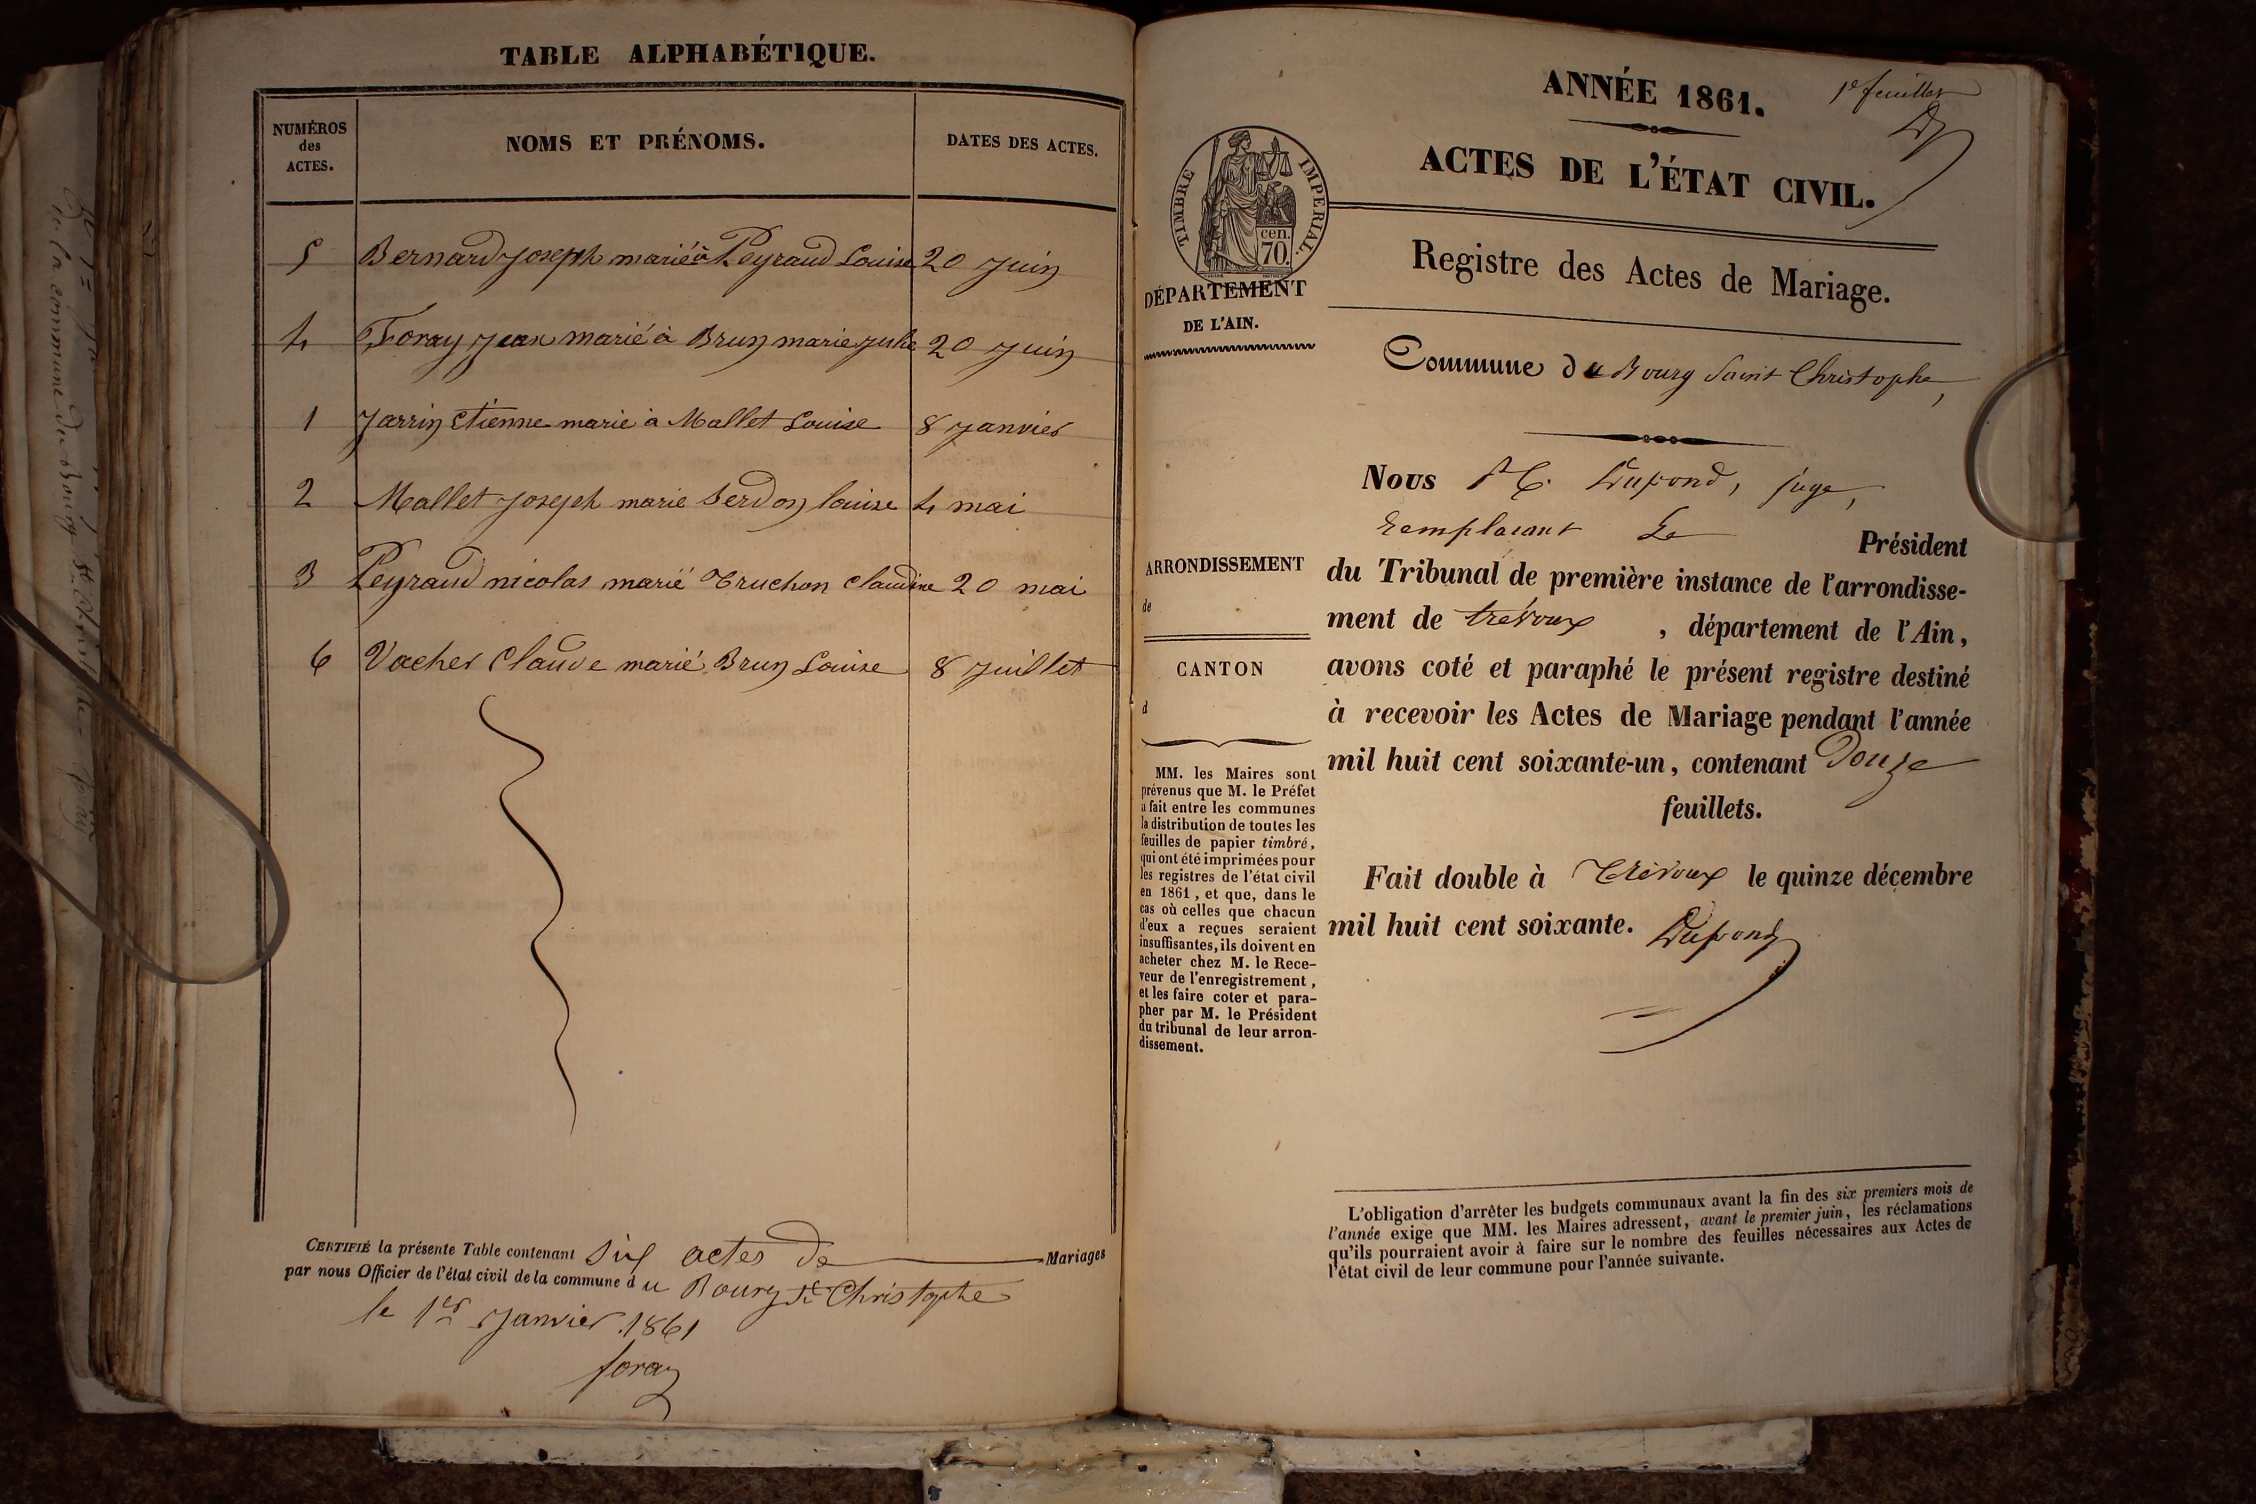 TABLE ALPHABÉTIQUE.
NUMÉROS des ACTES. NOMS ET PRÉNOMS. DATES DES ACTES.
5 Bernard Joseph marié à Peyraud Louise 20 Juin
4 Foray Jean marié à Brun marie julie 20 Juin
1 Jarrin Etienne marie à Mallet Louise 8 Janvier
2 Mallet Joseph marie Serdon louise 4 mai
3 Peyraud nicolas marié Truchon claudine 20 mai
6 Vacher Claude marié Brun Louise 8 Juillet
CERTIFIÉ la présente Table contenant Six actes de Mariages
par nous Officier de l'état civil de la commune du Bourg St Christophe
le 1er Janvier 1861
foray
1e feuillet
ANNÉE 1861.
ACTES DE L'ÉTAT CIVIL.
TIMBRE IMPERIAL.
cen.
70.
DÉPARTEMENT
DE L'AIN.
Registre des Actes de Mariage.
Commune du Bourg Saint Christophe,
Nous Dupond, juge,
remplacant Le Président
du Tribunal de première instance de l'arrondisse-
ment de trévoux, département de l'Ain,
avons coté et paraphé le présent registre destiné
à recevoir les Actes de Mariage pendant l'année
mil huit cent soixante-un, contenant Douze
feuillets.
Fait double à Trévoux le quinze décembre
mil huit cent soixante. Dupond
ARRONDISSEMENT
de
CANTON
d
MM. les Maires sont
prévenus que M. le Préfet
a fait entre les communes
la distribution de toutes les
feuilles de papier timbré,
qui ont été imprimées pour
les registres de l'état civil
en 1861, et que, dans le
cas où celles que chacun
d'eux a reçues seraient
insuffisantes, ils doivent en
acheter chez M. le Rece-
veur de l'enregistrement,
et les faire coter et para-
pher par M. le Président
du tribunal de leur arron-
dissement.
L'obligation d'arrêter les budgets communaux avant la fin des six premiers mois de
l'année exige que MM. les Maires adressent, avant le premier juin, les réclamations
qu'ils pourraient avoir à faire sur le nombre des feuilles nécessaires aux Actes de
l'état civil de leur commune pour l'année suivante.